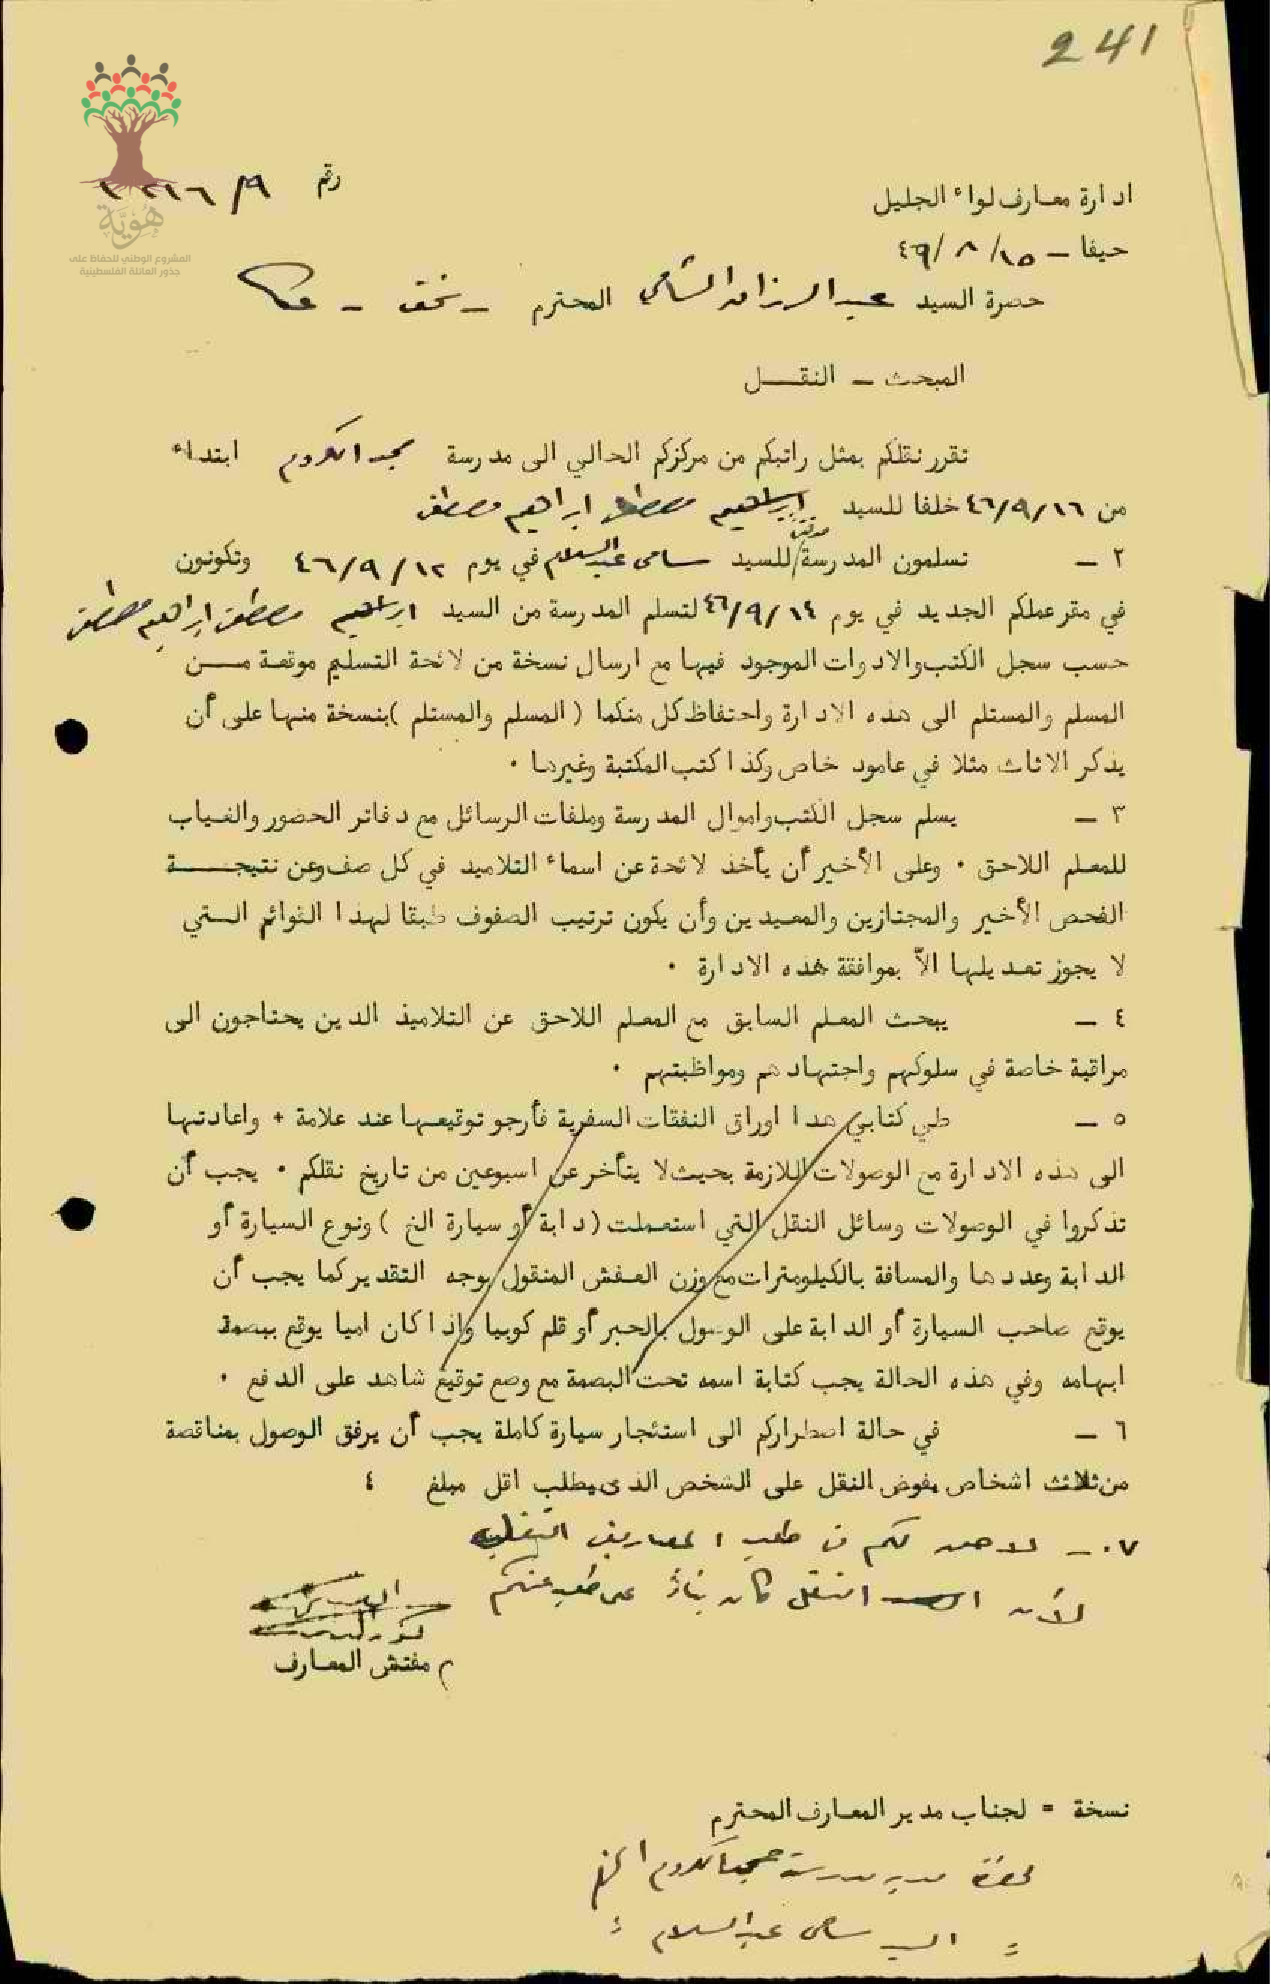 241
هُوِيَّة
المشروع الوطني للحفاظ على
جذور العائلة الفلسطينية
ادارة معارف لواء الجليل
رقم
حيفا - ١٥/ ٨ /٤٦
حضرة السيد عبد الرزاق الشامي المحترم - نحف - عكا
المبحث - النقـــل
تقرر نقلكم بمثل راتبكم من مركزكم الحالي الى مدرسة مجد الكروم ابتداء
من ٤٦/٩/١٦ خلفا للسيد ابراهيم مصطفى ابراهيم مصطفى
مؤقتا
٢ - تسلمون المدرسة/للسيد سامي عبد السلام في يوم ٤٦/٩/١٢ وتكونون
في مقر عملكم الجديد في يوم ٤٦/٩/١٤ لتسلم المدرسة من السيد ابراهيم مصطفى ابراهيم مصطفى
حسب سجل الكتب والادوات الموجود فيها مع ارسال نسخة من لائحة التسليم موقعة مـــن
المسلم والمستلم الى هذه الادارة واحتفاظ كل منكما (المسلم والمستلم) بنسخة منها على أن
يذكر الاثاث مثلا في عامود خاص وكذا كتب المكتبة وغيرها .
٣ - يسلم سجل الكتب واموال المدرسة وملفات الرسائل مع دفاتر الحضور والغياب
للمعلم اللاحق . وعلى الأخير أن يأخذ لائحة عن اسماء التلاميذ في كل صف وعن نتيجـــــة
الفحص الأخير والمجتازين والمعيدين وأن يكون ترتيب الصفوف طبقا لهذا القوائم الـــتي
لا يجوز تعديلها الاّ بموافقة هذه الادارة .
٤ - يبحث المعلم السابق مع المعلم اللاحق عن التلاميذ الذين يحتاجون الى
مراقبة خاصة في سلوكهم واجتهادهم ومواظبتهم .
٥ - طي كتابي هذا اوراق النفقات السفرية فأرجو توقيعها عند علامة + واعادتها
الى هذه الادارة مع الوصولات اللازمة بحيث لا يتأخر عن اسبوعين من تاريخ نقلكم . يجب أن
تذكروا في الوصولات وسائل النقل التي استعملت (دابة أو سيارة الخ) ونوع السيارة أو
الدابة وعددها والمسافة بالكيلومترات مع وزن العفش المنقول بوجه التقدير كما يجب أن
يوقع صاحب السيارة أو الدابة على الوصول بالحبر أو قلم كوبيا واذا كان اميا يوقع ببصمة
ابهامه وفي هذه الحالة يجب كتابة اسمه تحت البصمة مع وضع توقيع شاهد على الدفع .
٦ - في حالة اضطراركم الى استئجار سيارة كاملة يجب أن يرفق الوصول بمناقصة
من ثلاثة اشخاص يفوض النقل على الشخص الذى يطلب اقل مبلغ ٤
٧ - لا حق لكم في طلب المصاريف النقلية
لأن النقل كان بناءً على طلب منكم
م مفتش المعارف
نسخة = لجناب مدير المعارف المحترم
لحضرة مدير مدرسة مجد الكروم
= السيد سامي عبد السلام